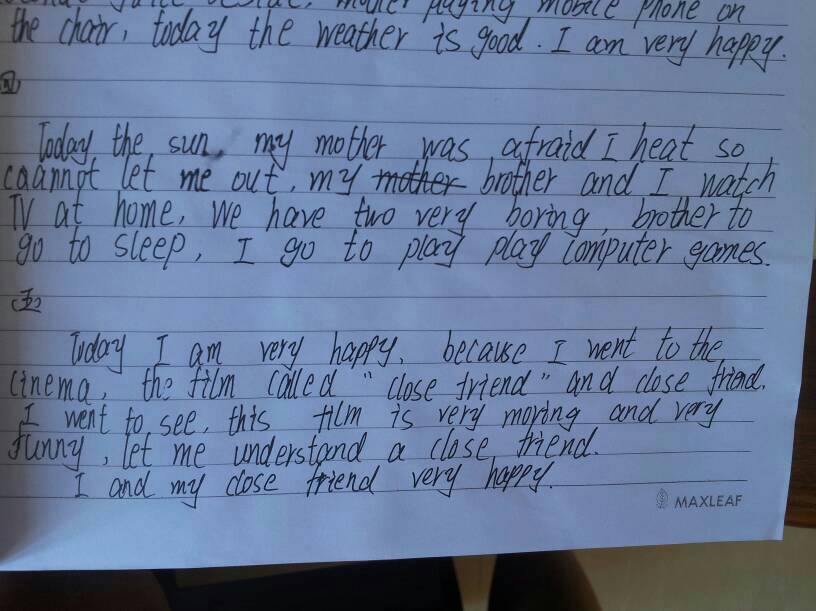 beside, mother playing mobile phone on
the chair, today the weather is good. I am very happy.
四
Today the sun, my mother was afraid I heat so
caannot let me out, my mother brother and I watch
TV at home, We have two very boring, brother to
go to sleep, I go to play play computer games.
五
Today I am very happy, because I went to the
cinema, the film called "close friend" and close friend.
I went to see, this film is very moving and very
funny, let me understand a close friend.
I and my close friend very happy.
MAXLEAF